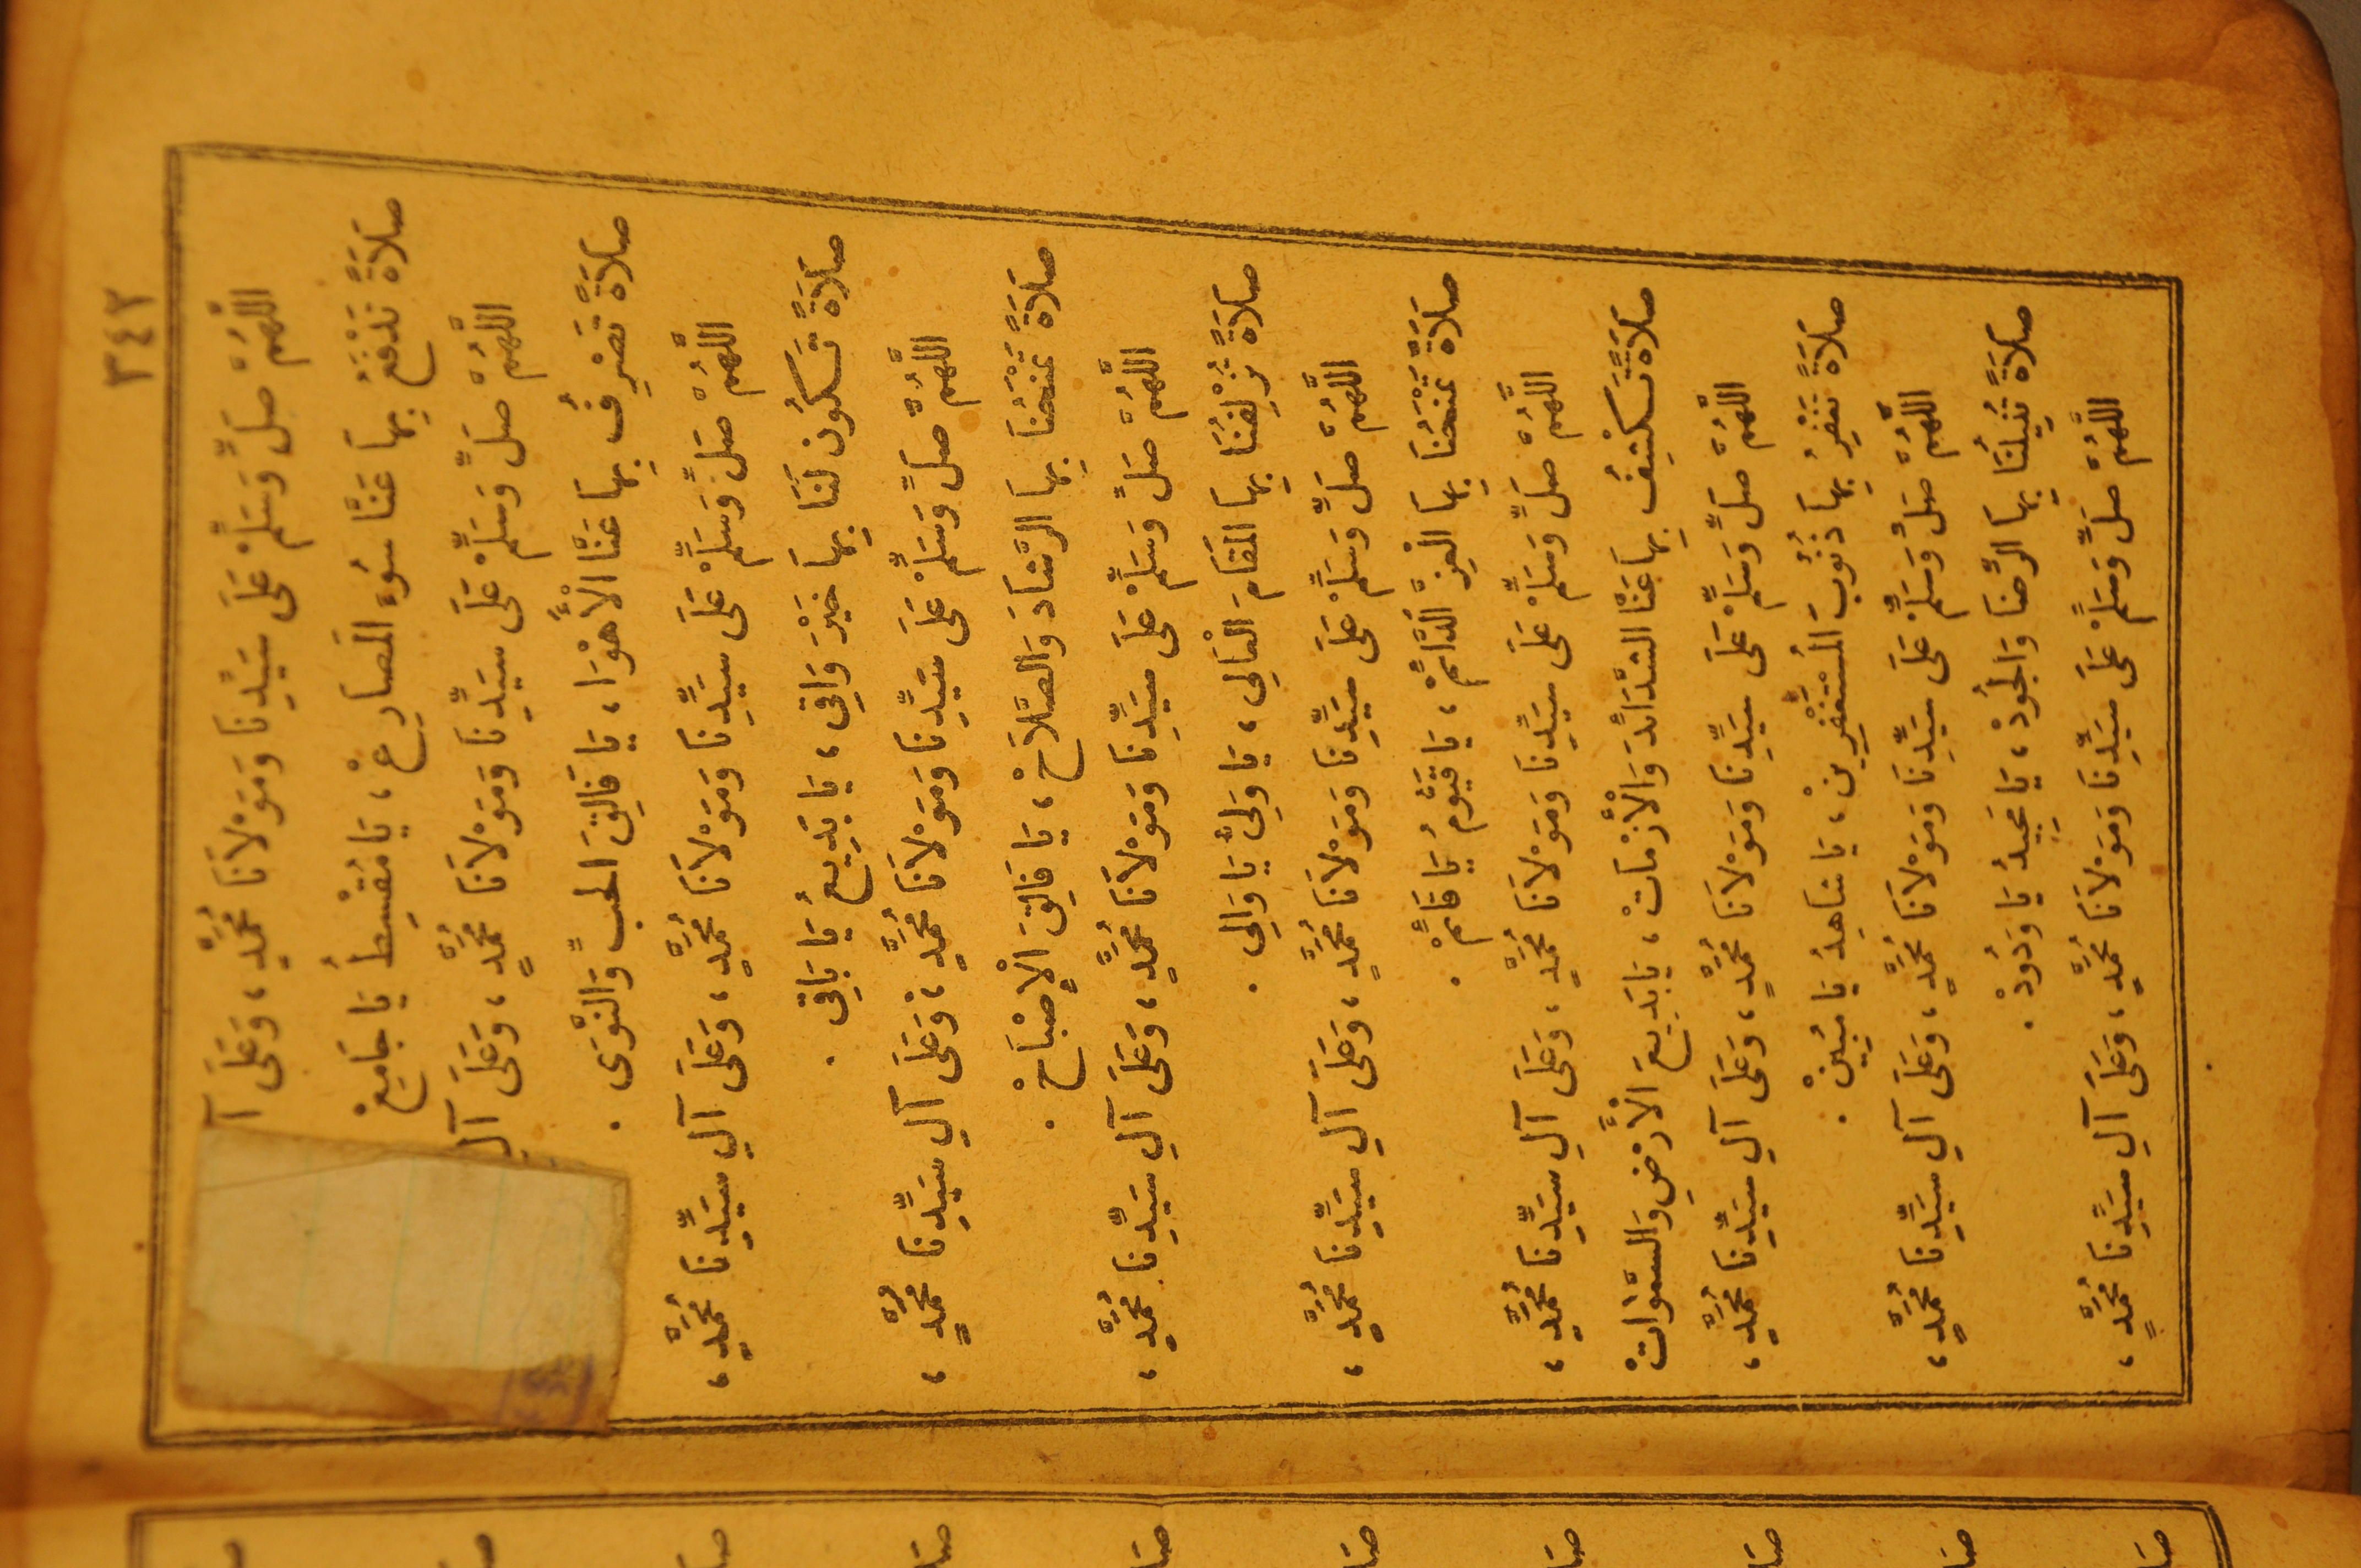 ٣٤٢
اللَّهُمَّ صَلِّ وَسَلِّمْ عَلَى سَيِّدِنَا وَمَوْلَانَا مُحَمَّدٍ، وَعَلَى آ
صَلَاةً تَدْفَعُ بِهَا عَنَّا سُوءَ الْمَصَارِعْ، يَا مُقْسِطُ يَا جَامِعْ
اللَّهُمَّ صَلِّ وَسَلِّمْ عَلَى سَيِّدِنَا وَمَوْلَانَا مُحَمَّدٍ، وَعَلَى آلِ
صَلَاةً تَصْرِفُ بِهَا عَنَّا الْأَهْوَا، يَا فَالِقَ الْحَبِّ وَالنَّوَى.
اللَّهُمَّ صَلِّ وَسَلِّمْ عَلَى سَيِّدِنَا وَمَوْلَانَا مُحَمَّدٍ، وَعَلَى آلِ سَيِّدِنَا مُحَمَّدٍ،
صَلَاةً تَكُونُ لَنَا بِهَا خَيْرَ وَاقِى، يَا بَدِيعُ يَا بَاقِى.
اللَّهُمَّ صَلِّ وَسَلِّمْ عَلَى سَيِّدِنَا وَمَوْلَانَا مُحَمَّدٍ، وَعَلَى آلِ سَيِّدِنَا مُحَمَّدٍ،
صَلَاةً تَمْنَحُنَا بِهَا الرَّشَادَ وَالصَّلَاحْ، يَا فَالِقَ الْإِصْبَاحْ.
اللَّهُمَّ صَلِّ وَسَلِّمْ عَلَى سَيِّدِنَا وَمَوْلَانَا مُحَمَّدٍ، وَعَلَى آلِ سَيِّدِنَا مُحَمَّدٍ،
صَلَاةً تُزْلِفُنَا بِهَا الْمَقَامَ الْعَالِى، يَا وَلِىُّ يَا وَالِى.
اللَّهُمَّ صَلِّ وَسَلِّمْ عَلَى سَيِّدِنَا وَمَوْلَانَا مُحَمَّدٍ، وَعَلَى آلِ سَيِّدِنَا مُحَمَّدٍ،
صَلَاةً تَمْنَحُنَا بِهَا الْعِزَّ الدَّائِمْ، يَا قَيُّومُ يَا قَائِمْ.
اللَّهُمَّ صَلِّ وَسَلِّمْ عَلَى سَيِّدِنَا وَمَوْلَانَا مُحَمَّدٍ، وَعَلَى آلِ سَيِّدِنَا مُحَمَّدٍ،
صَلَاةً تَكْشِفُ بِهَا عَنَّا الشَّدَائِدَ وَالْأَزْمَاتْ، يَا بَدِيعَ الْأَرْضِ وَالسَّمٰوَاتْ
اللَّهُمَّ صَلِّ وَسَلِّمْ عَلَى سَيِّدِنَا وَمَوْلَانَا مُحَمَّدٍ، وَعَلَى آلِ سَيِّدِنَا مُحَمَّدٍ،
صَلَاةً تَغْفِرُ بِهَا ذُنُوبَ الْمُسْتَغْفِرِينْ، يَا شَاهِدُ يَا مُبِينْ.
اللَّهُمَّ صَلِّ وَسَلِّمْ عَلَى سَيِّدِنَا وَمَوْلَانَا مُحَمَّدٍ، وَعَلَى آلِ سَيِّدِنَا مُحَمَّدٍ،
صَلَاةً تُنِيلُنَا بِهَا الرِّضَا وَالْجُودْ، يَا مَجِيدُ يَا وَدُودْ.
اللَّهُمَّ صَلِّ وَسَلِّمْ عَلَى سَيِّدِنَا وَمَوْلَانَا مُحَمَّدٍ، وَعَلَى آلِ سَيِّدِنَا مُحَمَّدٍ،